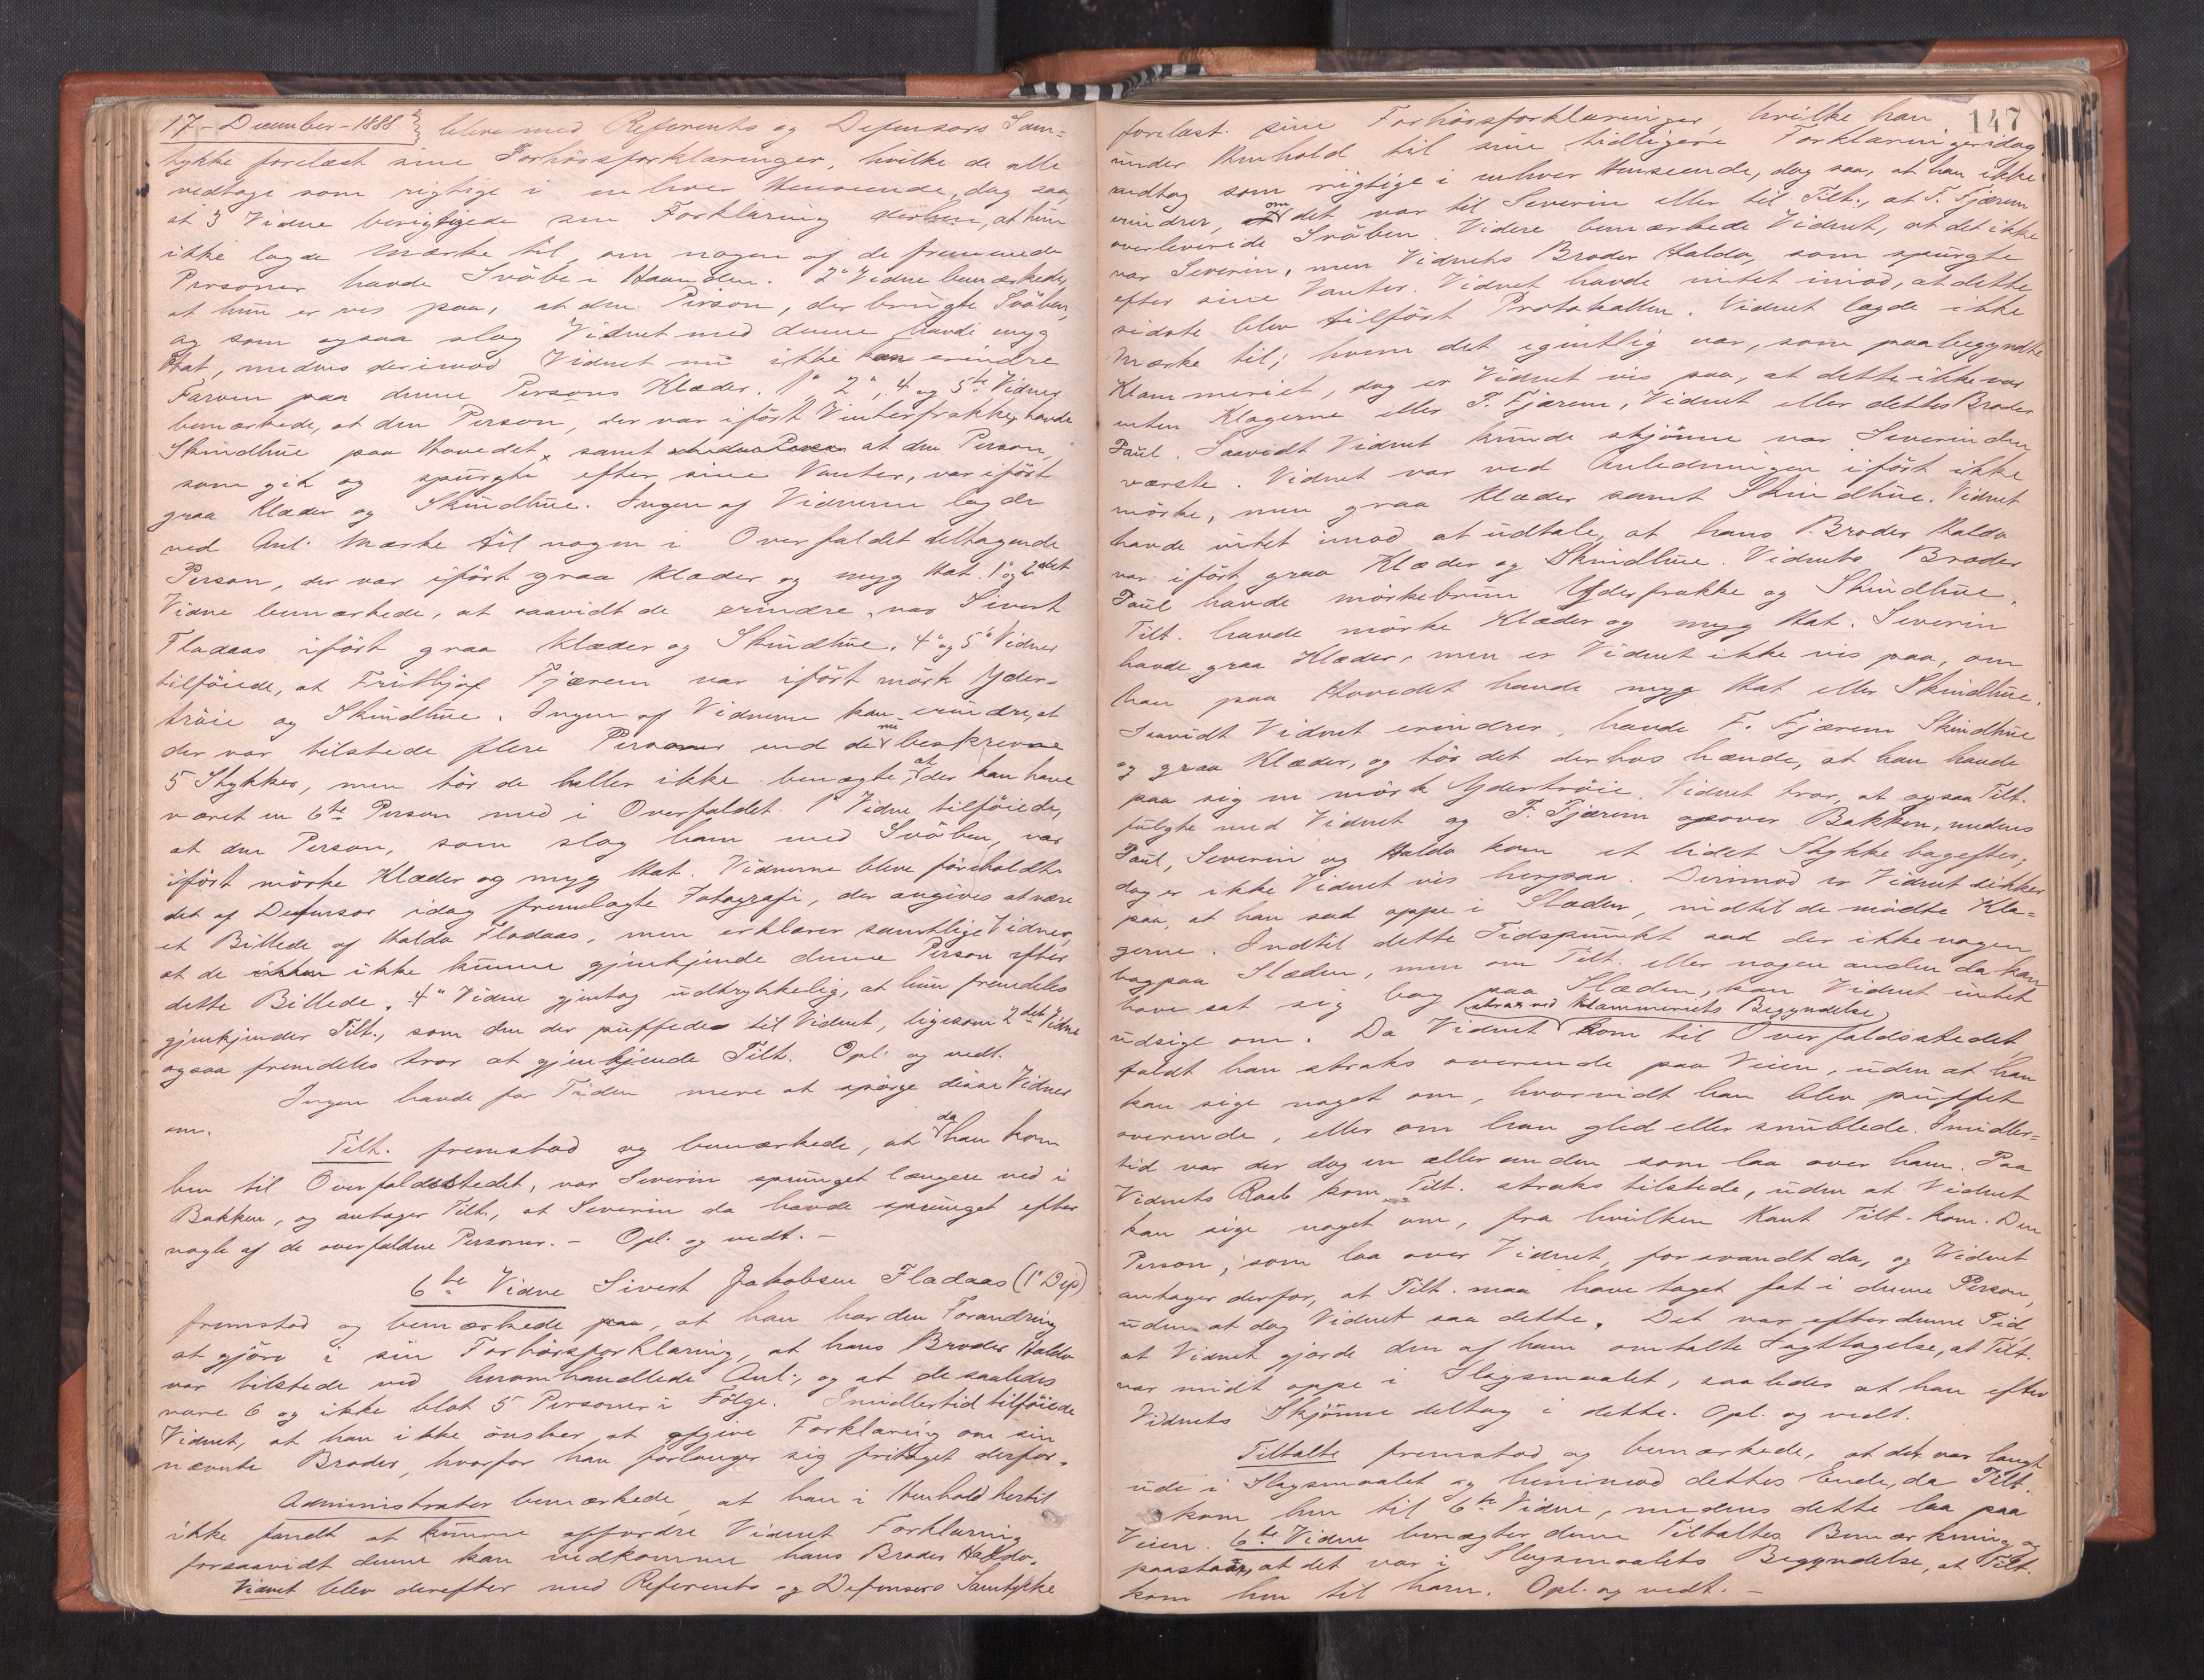 17 - December - 1888 bleve med Referents og Defensors Sam=
tykke forelæst sine Forhørsforklaringer, hvilke de alle
vedtoge som rigtige i enhver Henseende, dog saa,
at 3 Vidne berigtigede sin Forklaring derhen, at hun
ikke lagde Mærke til, om nogen af de fremmede
Personer havde Svøbe i Haanden. 2" Vidne bemærkede,
at hun er vis paa, at den Person, der brugte Svøben,
og som ogsaa slog Vidnet med denne havde myg
Hat, medens derimod Vidnet nu ikke kan erindre
Farven paa denne Persons Klæder. 1", 2", 4 og 5te Vidner
bemærkede, at den Person, der var iført Vinterfrakke, havde
Skindhue paa Hovedet, samt at den Person,
som gik og spurgte efter sine Vanter, var iført
graa Klæder og Skindhue. Ingen af Vidnerne lagde
ved Anl. Mærke til nogen i Overfaldet deltagende
Person, der var iført graa Klæder og myg Hat. 1" og 2det
Vidne bemærkede, at saavidt de erindre, var Sivert
Fladaas iført graa Klæder og Skindhue. 4" og 5" Vidner
tilføiede, at Frithjof Fjærem var iført mørk Yder=
trøie og Skindhue. Ingen af Vidnerne kan erindre, at
der var tilstede flere Personer end de nu beskrevne
5 Stykker, men tør de heller ikke benægte at der kan have
været en 6te Person med i Overfaldet. 1" Vidne tilføiede,
at den Person, som slog ham med Svøben, var
iført mørke Klæder og myg Hat. Vidnerne bleve foreholdte
det af Defensor idag fremlagte Fotografi, der angives at være
et Billede af Haldo Fladaas, men erklærer samtlige Vidner,
at de ikke kunne gjenkjende denne Person efter
dette Billede. 4" Vidne gjentog udtrykkelig, at hun fremdeles
gjenkjender Tilt., som den der puffede til Vidnet, ligesom 2det Vidne
ogsaa fremdeles tror at gjenkjende Tilt. Opl. og vedt.
Ingen havde for Tiden mere at spørge disse Vidner
om.
Tilt. fremstod og bemærkede, at da han kom
hen til Overfaldsstedet, var Severin sprunget længere ned i
Bakken, og antager Tilt., at Severin da havde sprunget efter
nogle af de overfaldne Personer. - Opl. og vedt. -
6te Vidne Sivert Jakobsen Fladaas (1" Dep)
fremstod og bemærkede paa, at han har den Forandring
at gjøre i sin Forhørsforklaring, at hans Broder Haldo
var tilstede ved heromhandlede Anl., og at de saaledes
vare 6 og ikke blot 5 Personer i Følge. Imidlertid tilføiede
Vidnet, at han ikke ønsker at afgive Forklaring om sin
nævnte Broder, hvorfor han forlanger sig fritaget derfor.
Administrator bemærkede, at han i Henhold hertil
ikke fandt at kunne affordre Vidnet Forklaring
forsaavidt denne kan vedkomme hans Broder Haldo.
Vidnet blev derefter med Referents og Defensors Samtykke
147
forelæst sine Forhørsforklaringer, hvilke han
under Henhold til sine tidligere Forklaringer idag
vedtog som rigtige i enhver Henseende, dog saa, at han ikke
erindrer, om det var til Severin eller til Tilt., at F. Fjærem
overleverede Svøben. Videre bemærkede Vidnet, at det ikke
var Severin, men Vidnets Broder Haldo, som spurgte
efter sine Vanter. Vidnet havde intet imod, at dette
sidste blev tilført Protokollen. Vidnet lagde ikke
Mærke til, hvem det egentlig var, som paabegyndte
Klammeriet, dog er Vidnet vis paa, at dette ikke var
enten Klagerne eller F. Fjærem, Vidnet eller dettes Broder
Paul. Saavidt Vidnet kunde skjønne var Severin den
værste. Vidnet var ved Anledningen iført ikke
mørke, men graa Klæder samt Skindhue. Vidnet
havde intet imod at udtale, at hans Broder Haldo
var iført graa Klæder og Skindhue. Vidnets Broder
Paul havde mørkebrun Yderfrakke og Skindhue.
Tilt. havde mørke Klæder og myg Hat. Severin
havde graa Klæder, men er Vidnet ikke vis paa, om
han paa Hovedet havde myg Hat eller Skindhue.
Saavidt Vidnet erindrer, havde F. Fjærem Skindhue
og graa Klæder, og tør det derhos hænde, at han havde
paa sig en mørk Ydertrøie. Vidnet tror, at ogsaa Tilt.
fulgte med Vidnet og F. Fjærem over Bakken, medens
Paul, Severin og Haldo kom et lidet Stykke bagefter,
dog er ikke Vidnet vis herpaa. Derimod er Vidnet sikker
paa, at han sad oppe i Slæden, indtil de mødte Kla=
gerne. Indtil dette Tidspunkt sad der ikke nogen
bagpaa Slæden, men om Tilt. eller nogen anden da kan
have sat sig bag paa Slæden, kan Vidnet intet
udsige om. Da Vidnet strax ved Klammeriets Begyndelse kom til Overfaldsstedet,
faldt han straks overende paa Veien, uden at han
kan sige noget om, hvorvidt han blev puffet
overende, eller om han gled eller snublede. Imidler=
tid var der dog en eller anden som laa over ham. Paa
Vidnets Raab kom Tilt. straks tilstede, uden at Vidnet
kan sige noget om, fra hvilken Kant Tilt. kom. Den
Person, som laa over Vidnet, forsvandt da, og Vidnet
antager derfor, at Tilt. maa have taget fat i denne Person,
uden at dog Vidnet saa dette. Det var efter denne Tid
at Vidnet gjorde den af ham omtalte Iagttagelse, at Tilt.
var midt oppe i Slagsmaalet, saaledes at han efter
Vidnets Skjønne deltog i dette. Opl. og vedt.
Tiltalte fremstod og bemærkede, at det var langt
ude i Slagsmaalet og henimod dettes Ende, da Tilt.
kom hen til 6te Vidne, medens dette laa paa
Veien. 6te Vidne benægter denne Tiltaltes Bemærkning og
paastaar, at det var i Slagsmaalets Begyndelse, at Tilt.
kom hen til ham. Opl. og vedt. -